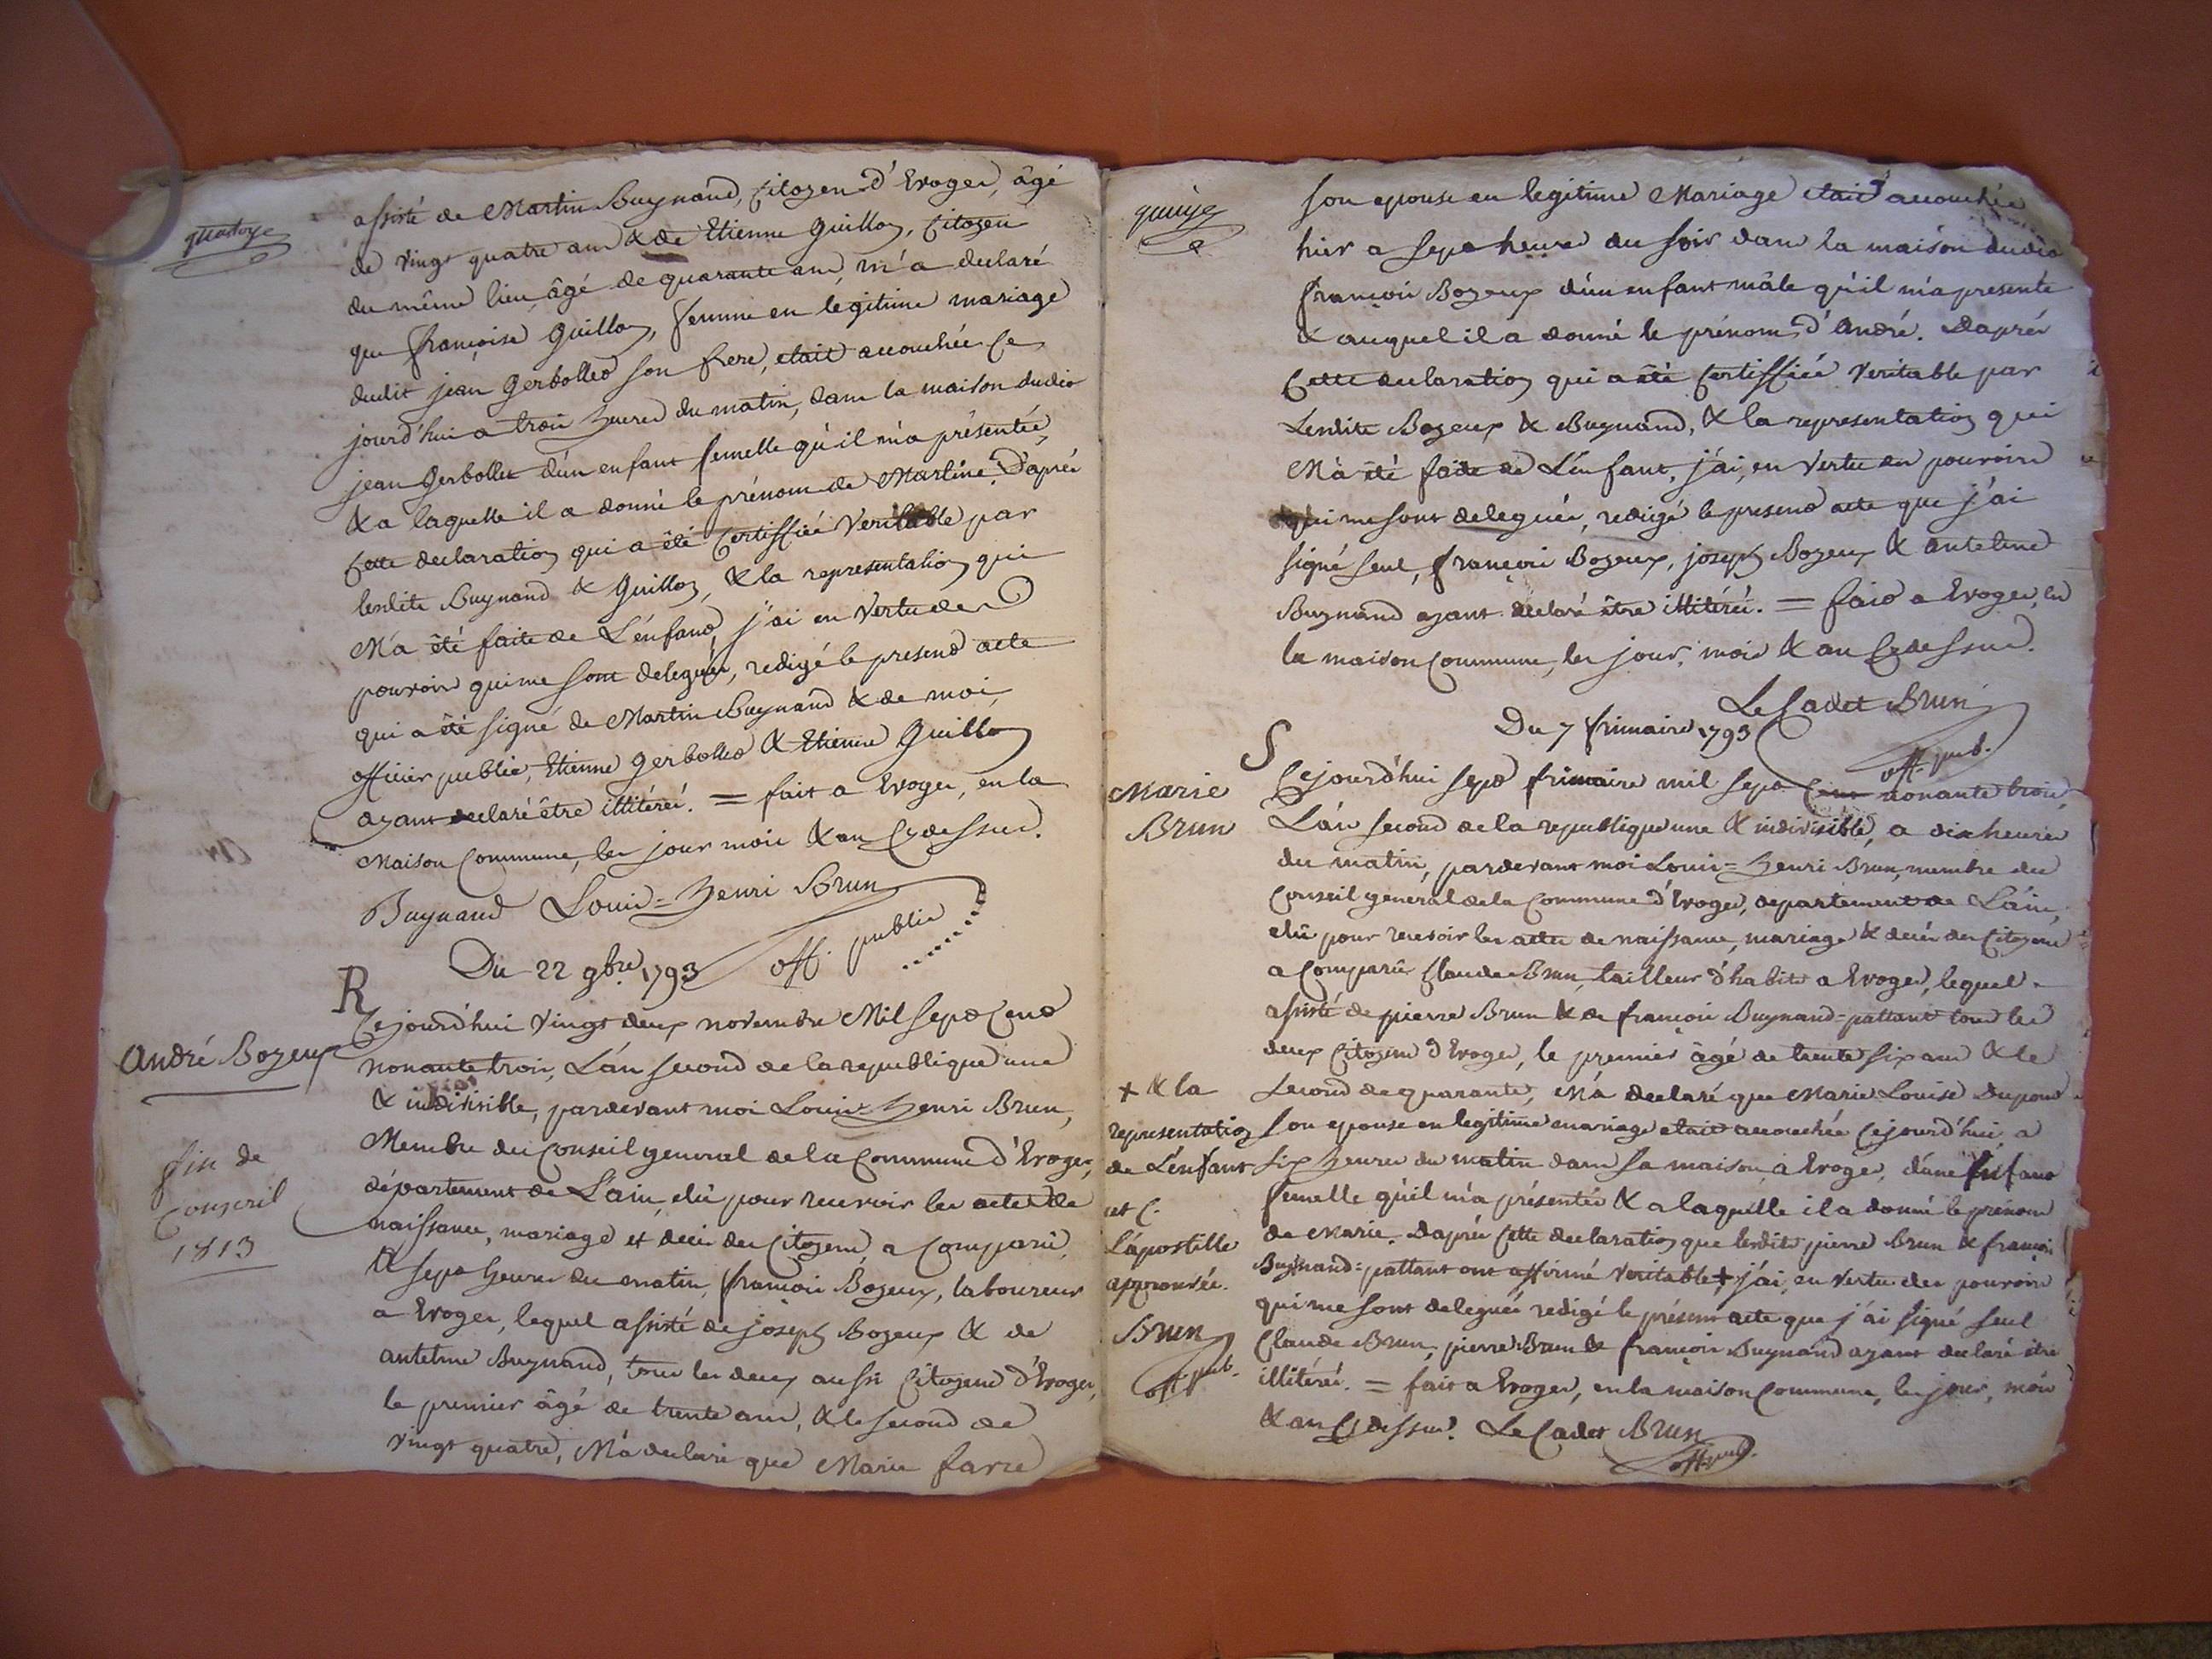 quatorze
assisté de Martin Buynand, Citoyen d'Evoges, âgé
de vingt quatre ans & de Etienne Guillon, Citoyen
du même lieu, âgé de quarante ans, m'a declaré
que françoise Guillon, femme en légitime mariage
dudit jean Gerbollet son frere, etait accouchée Ce
jourd'hui a trois heures du matin, dans la maison dudit
jean Gerbollet d'un enfant femelle qu'il m'a présentée,
& a laquelle il a donné le prénom de Martine. D'après
Cette declaration qui a été Certiffiée Veritable par
lesdits Buynand & Guillon, & la representation qui
M'a êté faite de L'énfant, j'ai en Vertu des
pouvoirs qui me sont delegués, redigé le present acte
qui a êté signé de Martin Buynand & de moi,
officier public, Etienne Gerbollet & Etienne Guillon
ayant declaré être illitérés. = fait a Evoges, en la
Maison Commune, les jour mois & an Cydessus.
Buynand Louis=henri Brun
off. public
Du 22 9bre 1793
R
André Bozeux
Cejourd'hui Vingt deux novembre Mil Sept Cent
nonante trois, L'án second de la republique une
& indivisible, pardevant moi Louis=henri Brun,
Membre du Conseil general de la Commune d'Evoges,
département de L'ain, elû pour recevoir les actes de
naissance, mariage et decés des Citoyens, a Comparû,
a sept heures du matin, françois Bozeux, laboureur
a Evoges, lequel assisté de joseph Bozeux & de
antelme Buynand, tous les deux aussi Citoyens d'Evoges,
le premier âgé de trente ans, & le second de
vingt quatre, M'á declaré que Marie farre
fin de
Conscril
1813
quinze
son epouse en legitime Mariage etait accouchée
hier a sept heures du soir dans la maison dudit
françois Bozeux d'un enfant mâle qu'il m'a presenté
& auquel il a donné le prénom d'André. Daprés
Cette declaration qui a êté Certiffiée Veritable par
Lesdits Bozeux & Buynand, & la representation qui
M'á êté faite de L'énfant, j'ai, en Vertu des pouvoirs
qui me sont delegués, redigé le present acte que j'ai
signé seul, françois Bozeux, joseph Bozeux & antelme
Buynand ayant declaré être illitérés. = fait a Evoges, en
la maison Commune, les jour, mois & an Cydessus.
Le Cadet Brun
off. pub.
Du 7 frimaire 1793
S
Marie
Brun
Cejourd'hui sept frimaire mil sept Cent nonante trois,
L'án second de la republique une & indivisible, a dix heures
du matin, pardevant moi Louis=henri Brun, membre du
Conseil général de la Commune d'Evoges, departement de L'áin,
elû pour recevoir les actes de naissance, mariage & decés des Citoyens
a Comparû Claude Brun, tailleur d'habits a Evoges, lequel
assisté de pierre Brun & de françois Buynand=pattant tous les
deux Citoyens d'Evoges, le premier âgé de trente six ans & le
second de quarante, M'á declaré que Marie Louise Dupont
son epouse en legitime mariage etait accouchée Cejourd'hui, a
six heures du matin dans sa maison, a Evoges, d'une Enfant
femelle qu'il m'a présentée & a laquelle il a donné le prénom
de Marie. Daprés Cette declaration que lesdits pierre Brun & françois
Buynand=pattant ont affirmé Veritable + j'ai, en Vertu des pouvoirs
qui me sont delegués redigé le présent acte que j'ai signé seul
Claude Brun, pierre Brun & françois Buynand ayant declaré être
illitérés. = fait a Evoges, en la maison Commune, les jour, mois
& an Cydessus. Le Cadet Brun
off. pub.
+ & la
representation
de L'énfant
L'ápostille
approuvée.
Brun
off. pub.